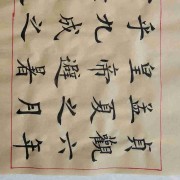 貞觀六年
孟夏之月
皇帝避暑
乎九成之